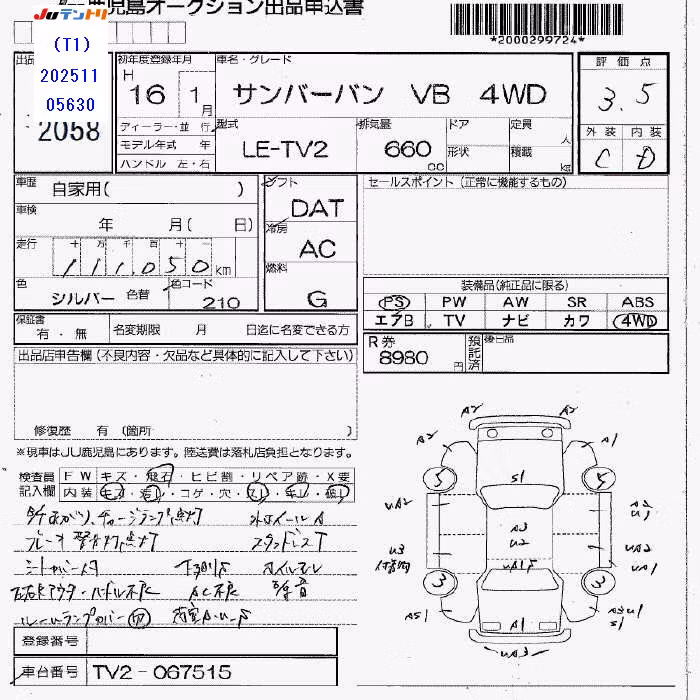 JUテントリ
鹿児島オークション出品申込書
*2000299724*
(T1)
202511
05630
2058
初年度登録年月
H 16 1月
車名・グレード
サンバーバン VB 4WD
評価点
3.5
外装 内装
C D
ディーラー・並行
モデル年式 年
ハンドル 左・右
型式
LE-TV2
排気量
660 cc
ドア
形状
定員 人
積載 kg
車歴 自家用( )
車検 年 月( 日)
走行 十万千百十一
111,050 km
色 シルバー 色替
色コード 210
シフト
DAT
冷房
AC
燃料
G
セールスポイント (正常に機能するもの)
装備品(純正品に限る)
PS PW AW SR ABS
エアB TV ナビ カワ 4WD
保証書 有・無
名変期限 月 日迄に名変できる方
R券
8980 円
預託済
後日品
出品店申告欄(不良内容・欠品など具体的に記入して下さい)
修復歴 有 (箇所 )
※現車はJU鹿児島にあります。陸送費は落札店負担となります。
検査員記入欄
FW キズ・飛石・ヒビ割・リペア跡・X要
内装 キズ・汚レ・コゲ・穴・スレ・キレ・破レ
チャージランプ点灯 外ホイールA
ブレーキ警告灯点灯 スタッドレスT
シートカバー付 下廻りS オイルモレ
AC不良 異音
ルームランプカバー
A2 A2
A2 A1
5 S1 5
A3
U2
UA2
A2
U1
U3
UA2
UA1
3 3
AS1
A1
S1
UA3
登録番号
車台番号 TV2-067515